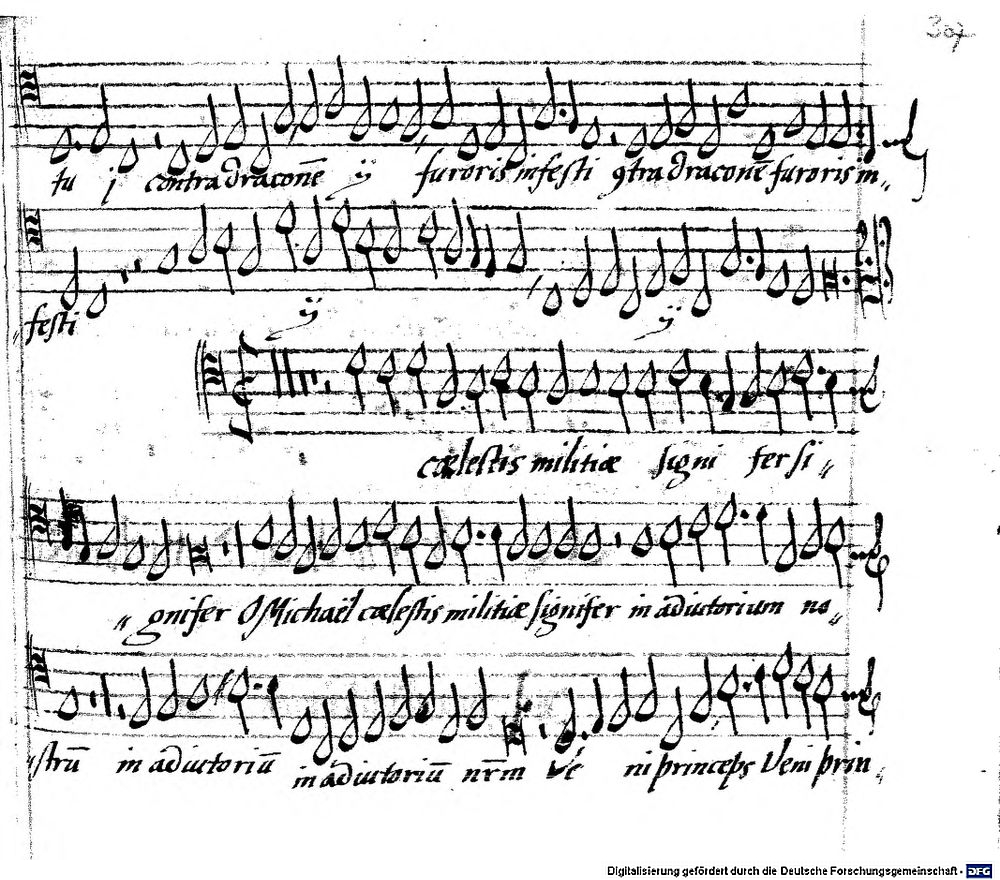 307
tu ij contra draconē ij furoris infesti 9tra draconē furoris in„
„festi ij ij
cælestis militiæ signi fer si„
„gnifer O Michaël cælestis militiæ signifer in adiutorium no„
„strū in adiutoriū in adiutoriū nr̄m Ve ni princeps Veni prin„
Digitalisierung gefördert durch die Deutsche Forschungsgemeinschaft - DFG